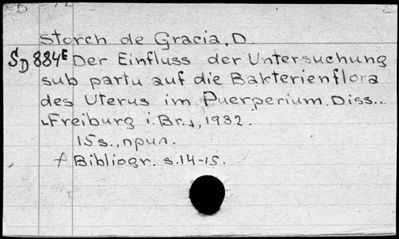 Storch de Gracia, D.
SD884E Der Einfluss der Untersuchung
sub partu auf die Bakterienflora
des Uterus im Puerperium. Diss..
Freiburg i. Br., 1932.
15 s., npun.
Bibliogr. s. 14-15.